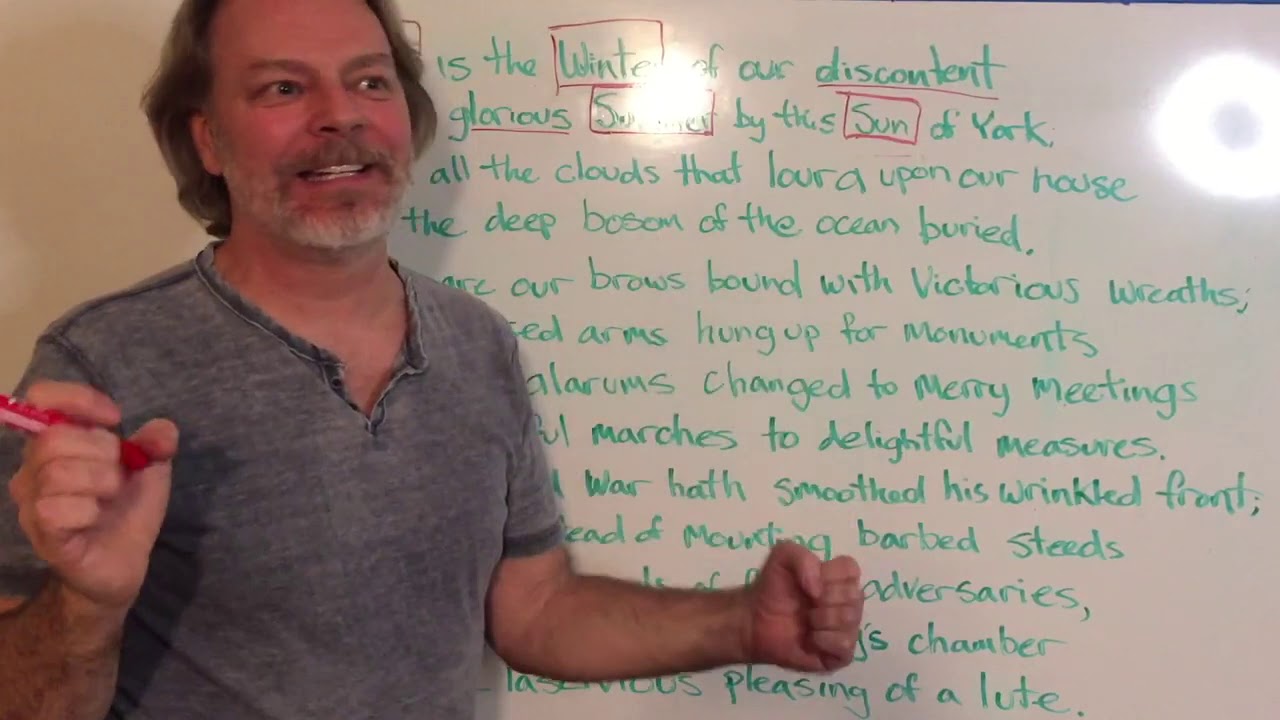 is the Winte of our discontent
glorious Summer by this Sun of York,
all the clouds that lour'd upon our house
the deep bosom of the ocean buried.
are our brows bound with Victorious wreaths;
sed arms hung up for Monuments
alarums changed to Merry Meetings
ful marches to delightful measures.
d War hath smoothed his wrinkled front;
ead of Mounting barbed steeds
of adversaries,
y's chamber
lascivious pleasing of a lute.